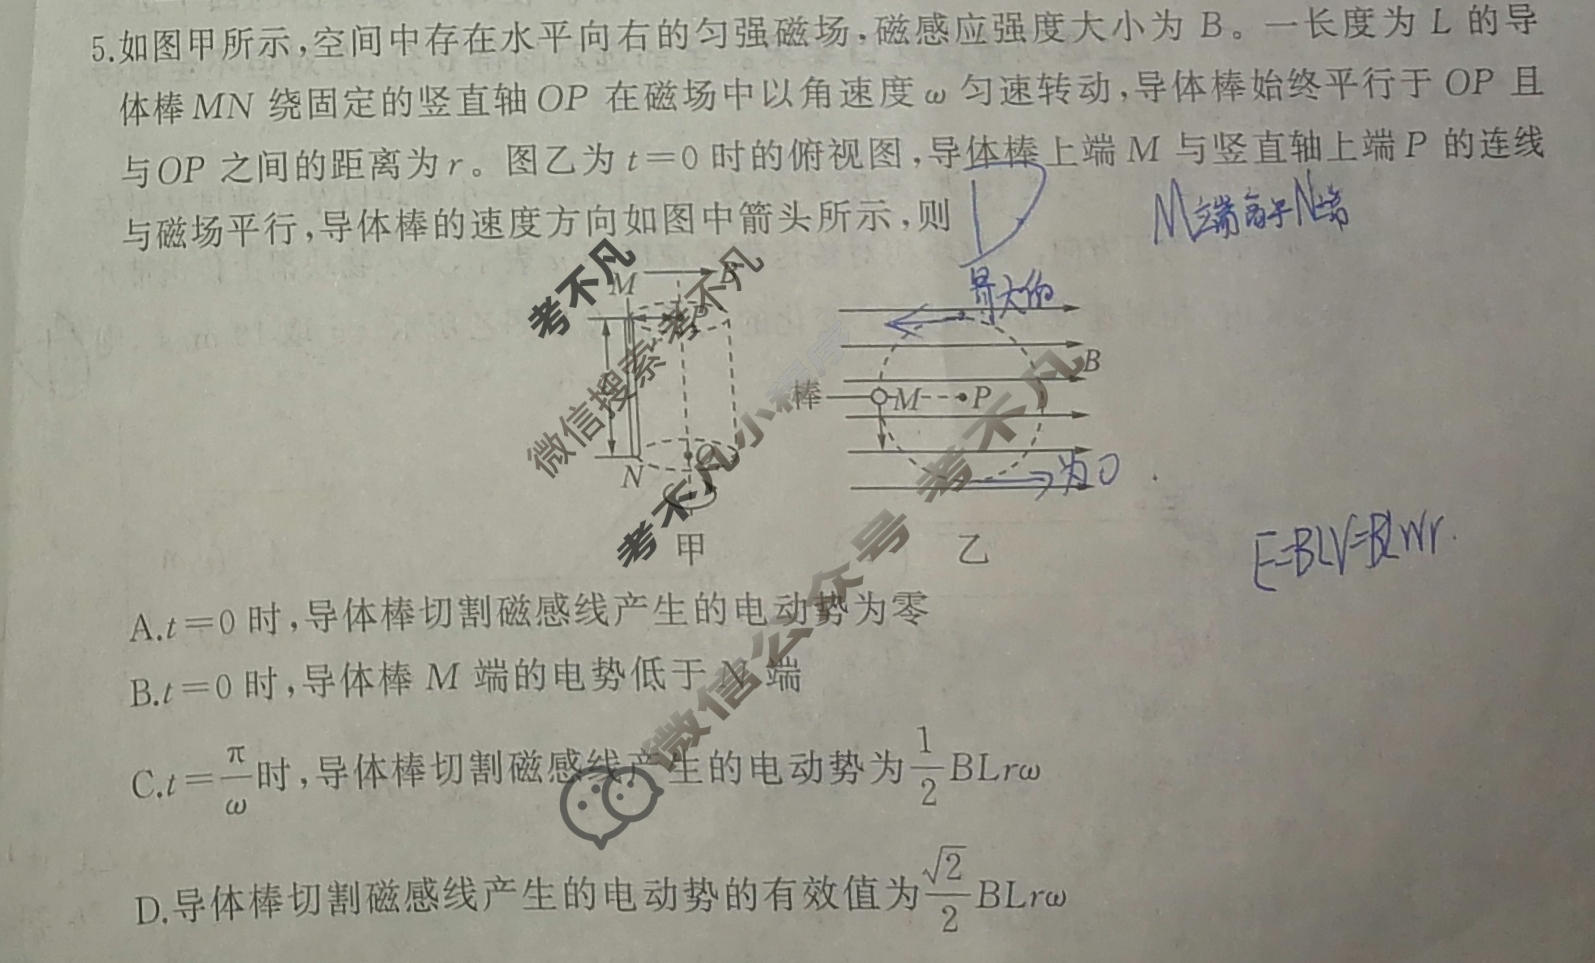 5.如图甲所示,空间中存在水平向右的匀强磁场,磁感应强度大小为 B。一长度为 L 的导
体棒 MN 绕固定的竖直轴 OP 在磁场中以角速度 ω 匀速转动,导体棒始终平行于 OP 且
与 OP 之间的距离为 r。图乙为 t=0 时的俯视图,导体棒上端 M 与竖直轴上端 P 的连线
与磁场平行,导体棒的速度方向如图中箭头所示,则
D
M端高于N端
M
B
P
N
O
甲
最大值
B
棒
M
P
为0
乙
E=BLV=BLWr.
考不凡
微信搜索 考不凡
考不凡小程序
微信公众号 考不凡
A.t=0 时,导体棒切割磁感线产生的电动势为零
B.t=0 时,导体棒 M 端的电势低于 N 端
C.t=π/ω时,导体棒切割磁感线产生的电动势为1/2 BLrω
D.导体棒切割磁感线产生的电动势的有效值为√2/2 BLrω